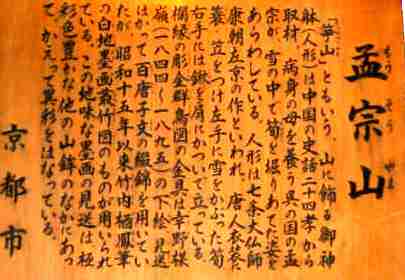 孟宗山
もうそうやま
「筍山」ともいう。山に飾る御神
躰(人形)は中国の史話二十四孝から
取材、病身の母を養う呉の国の孟
宗が、雪の中で筍を掘りあてた姿を
あらわしている。人形は七条大仏師
康朝左京の作といわれ、唐人衣裳に
蓑、笠をつけ左手に雪をかぶった筍
右手には鍬を肩にかついで立っている。
欄縁の彫金群鳥図の金具は幸野楳
嶺(一八四四~一八九五)の下絵、見送
はかって百唐子文の綴錦を用いてい
たが、昭和十五年以来竹内栖鳳筆
の白地墨画叢竹図のものが用いられ
ている。この地味な墨画の見送は極
彩色豊かな他の山鉾のなかにあっ
て、かえって異彩をはなっている。
京都市